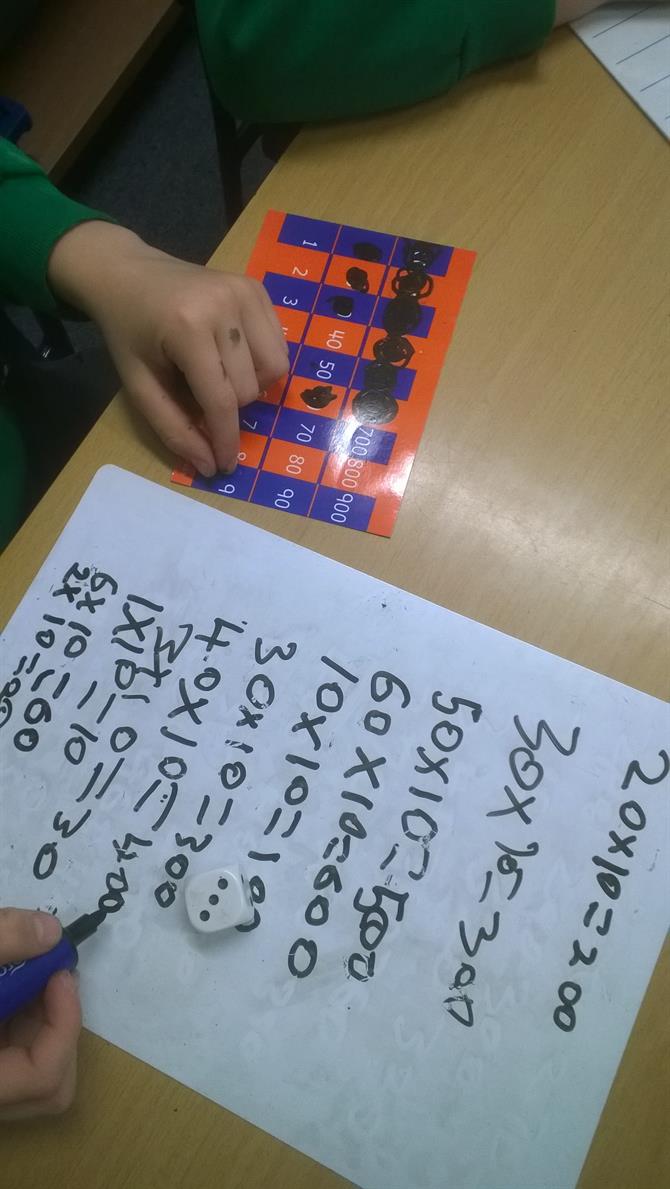 700 800 900
40 50 70 80 90
1 2 3 7 8 9
20x10=200
30x10=300
50x10=500
60x10=600
10x10=100
30x10=300
40x10=400
1x10=10
6x10=60
2x10=20